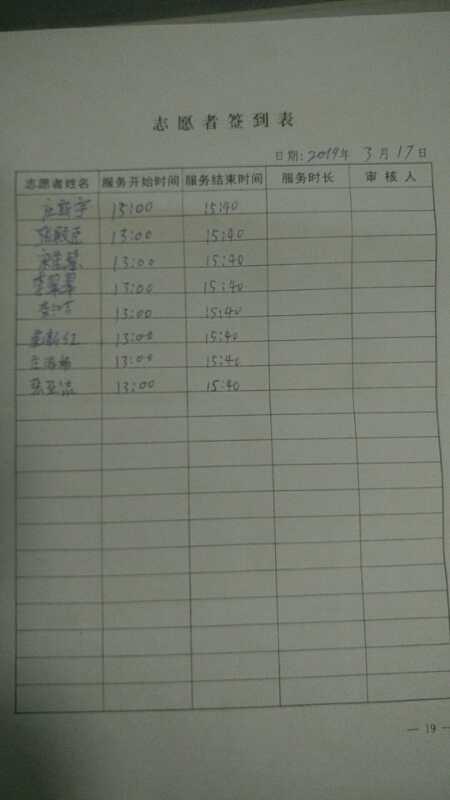 志愿者签到表
日期: 2019年 3月17日
志愿者姓名 服务开始时间 服务结束时间 服务时长 审核人
13:00 15:40
13:00 15:40
13:00 15:40
13:00 15:40
13:00 15:40
13:00 15:40
13:00 15:40
13:00 15:40
— 19 —